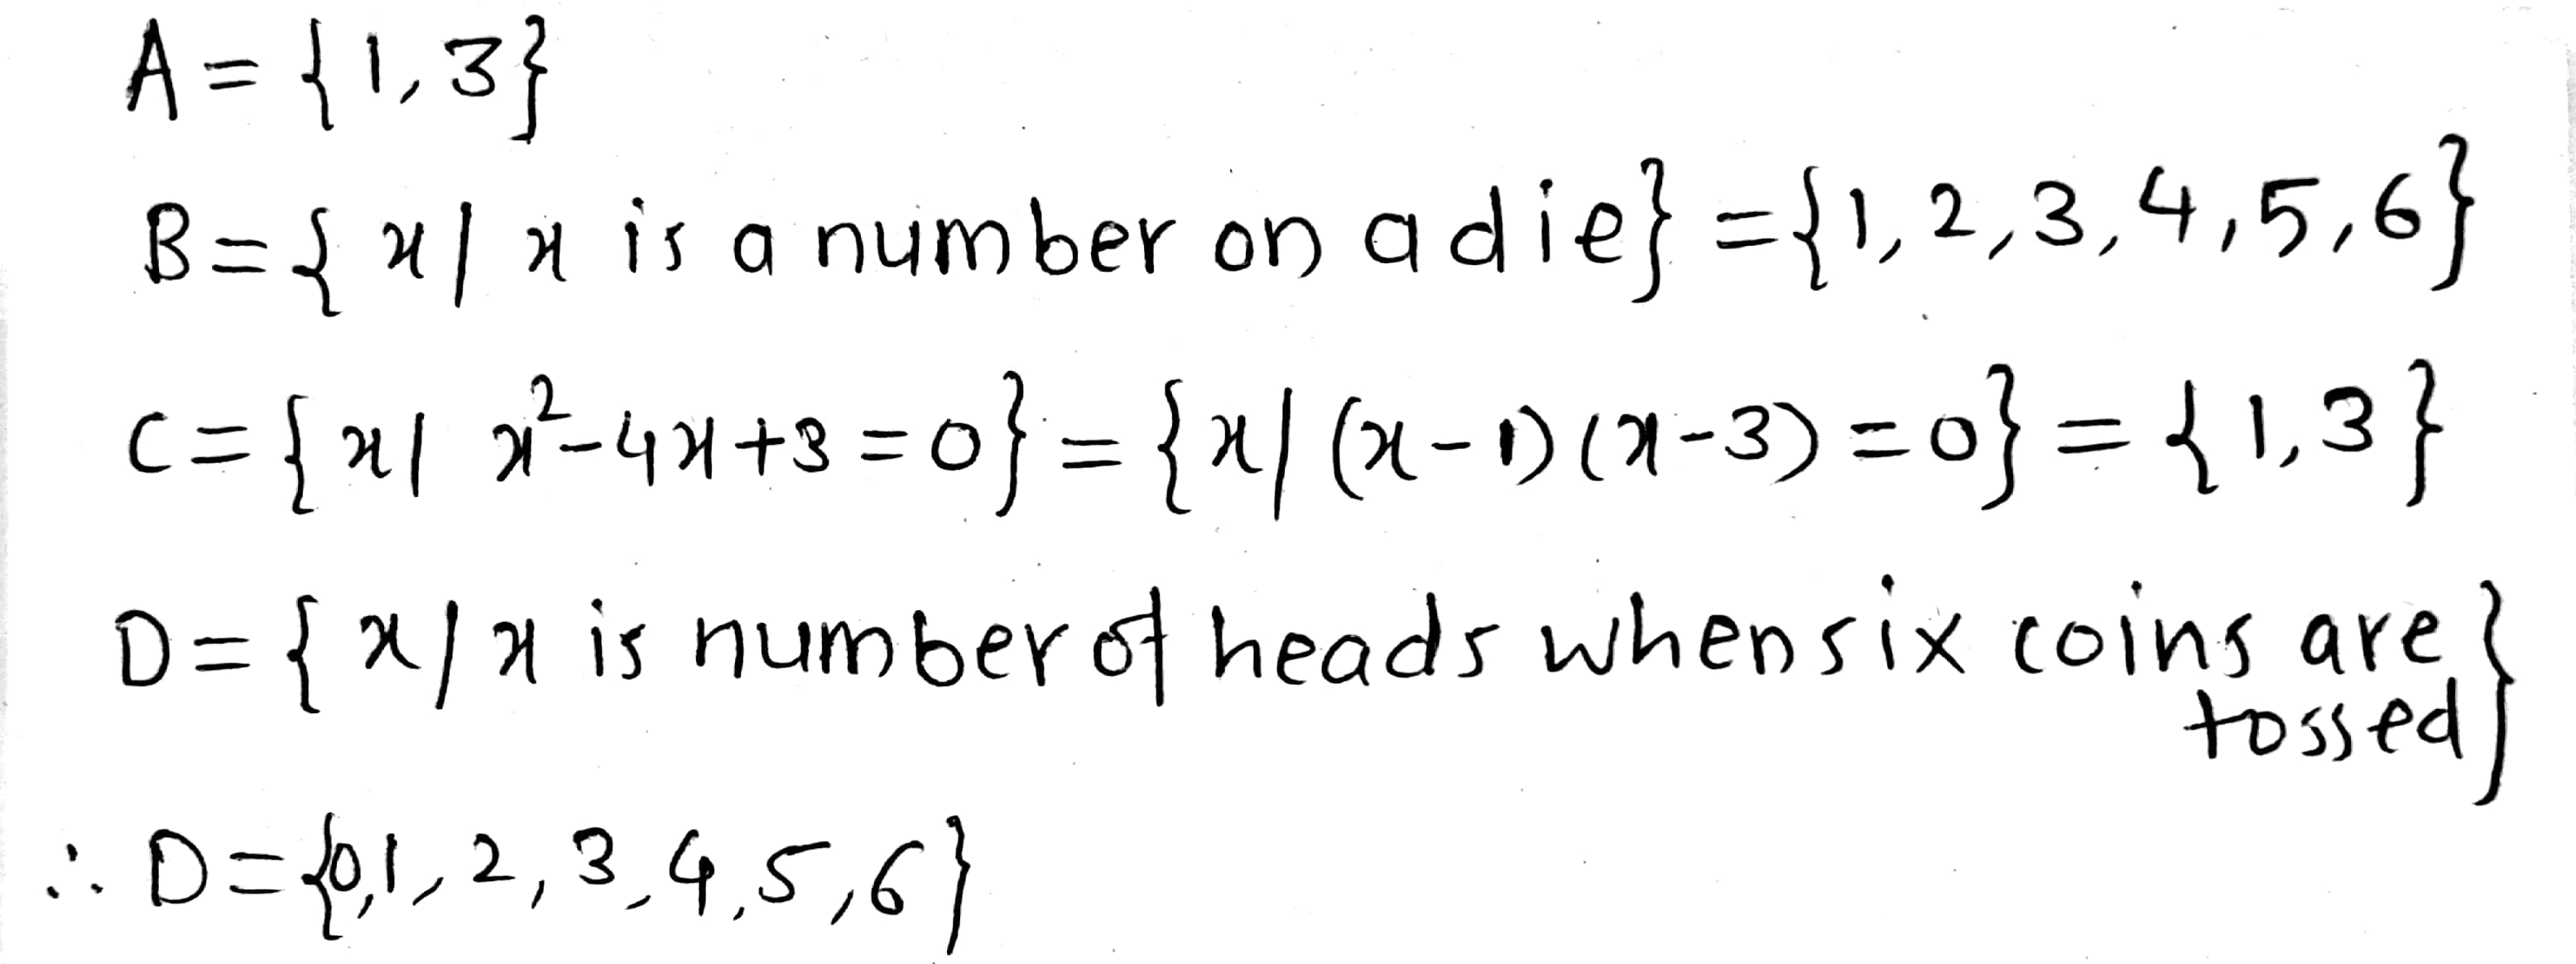 A = {1, 3}
B = {x | x is a number on a die} = {1, 2, 3, 4, 5, 6}
C = {x | x² - 4x + 3 = 0} = {x | (x - 1)(x - 3) = 0} = {1, 3}
D = {x | x is number of heads when six coins are
tossed}
∴ D = {0, 1, 2, 3, 4, 5, 6}